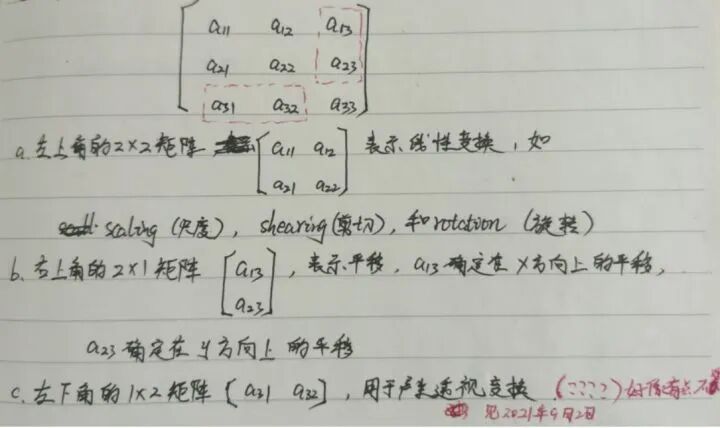 a11 a12 a13
a21 a22 a23
a31 a32 a33
a. 左上角的2×2矩阵 [a11 a12 表示线性变换,如
a21 a22]
scaling (尺度), shearing(剪切), 和rotation (旋转)
b. 右上角的2×1矩阵 [a13 ,表示平移,a13确定在x方向上的平移,
a23]
a23确定在y方向上的平移
c. 左下角的1×2矩阵 [a31 a32],用于产生透视变换 好像有点不
见2021年9月2日